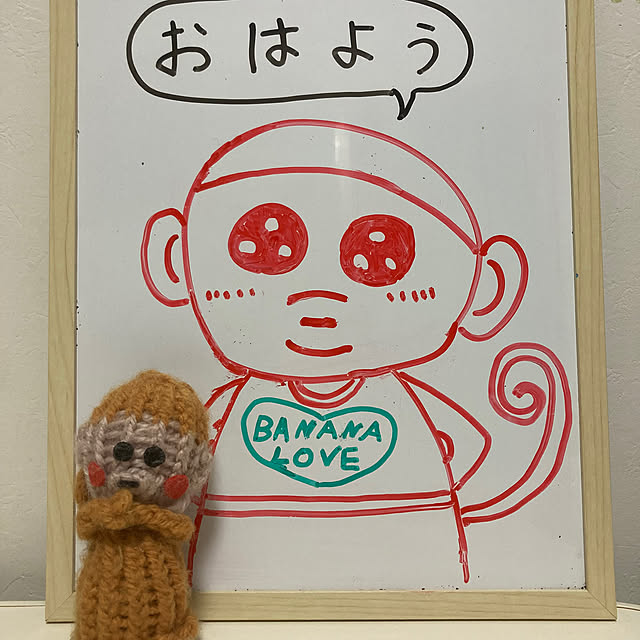 おはよう
BANANA
LOVE